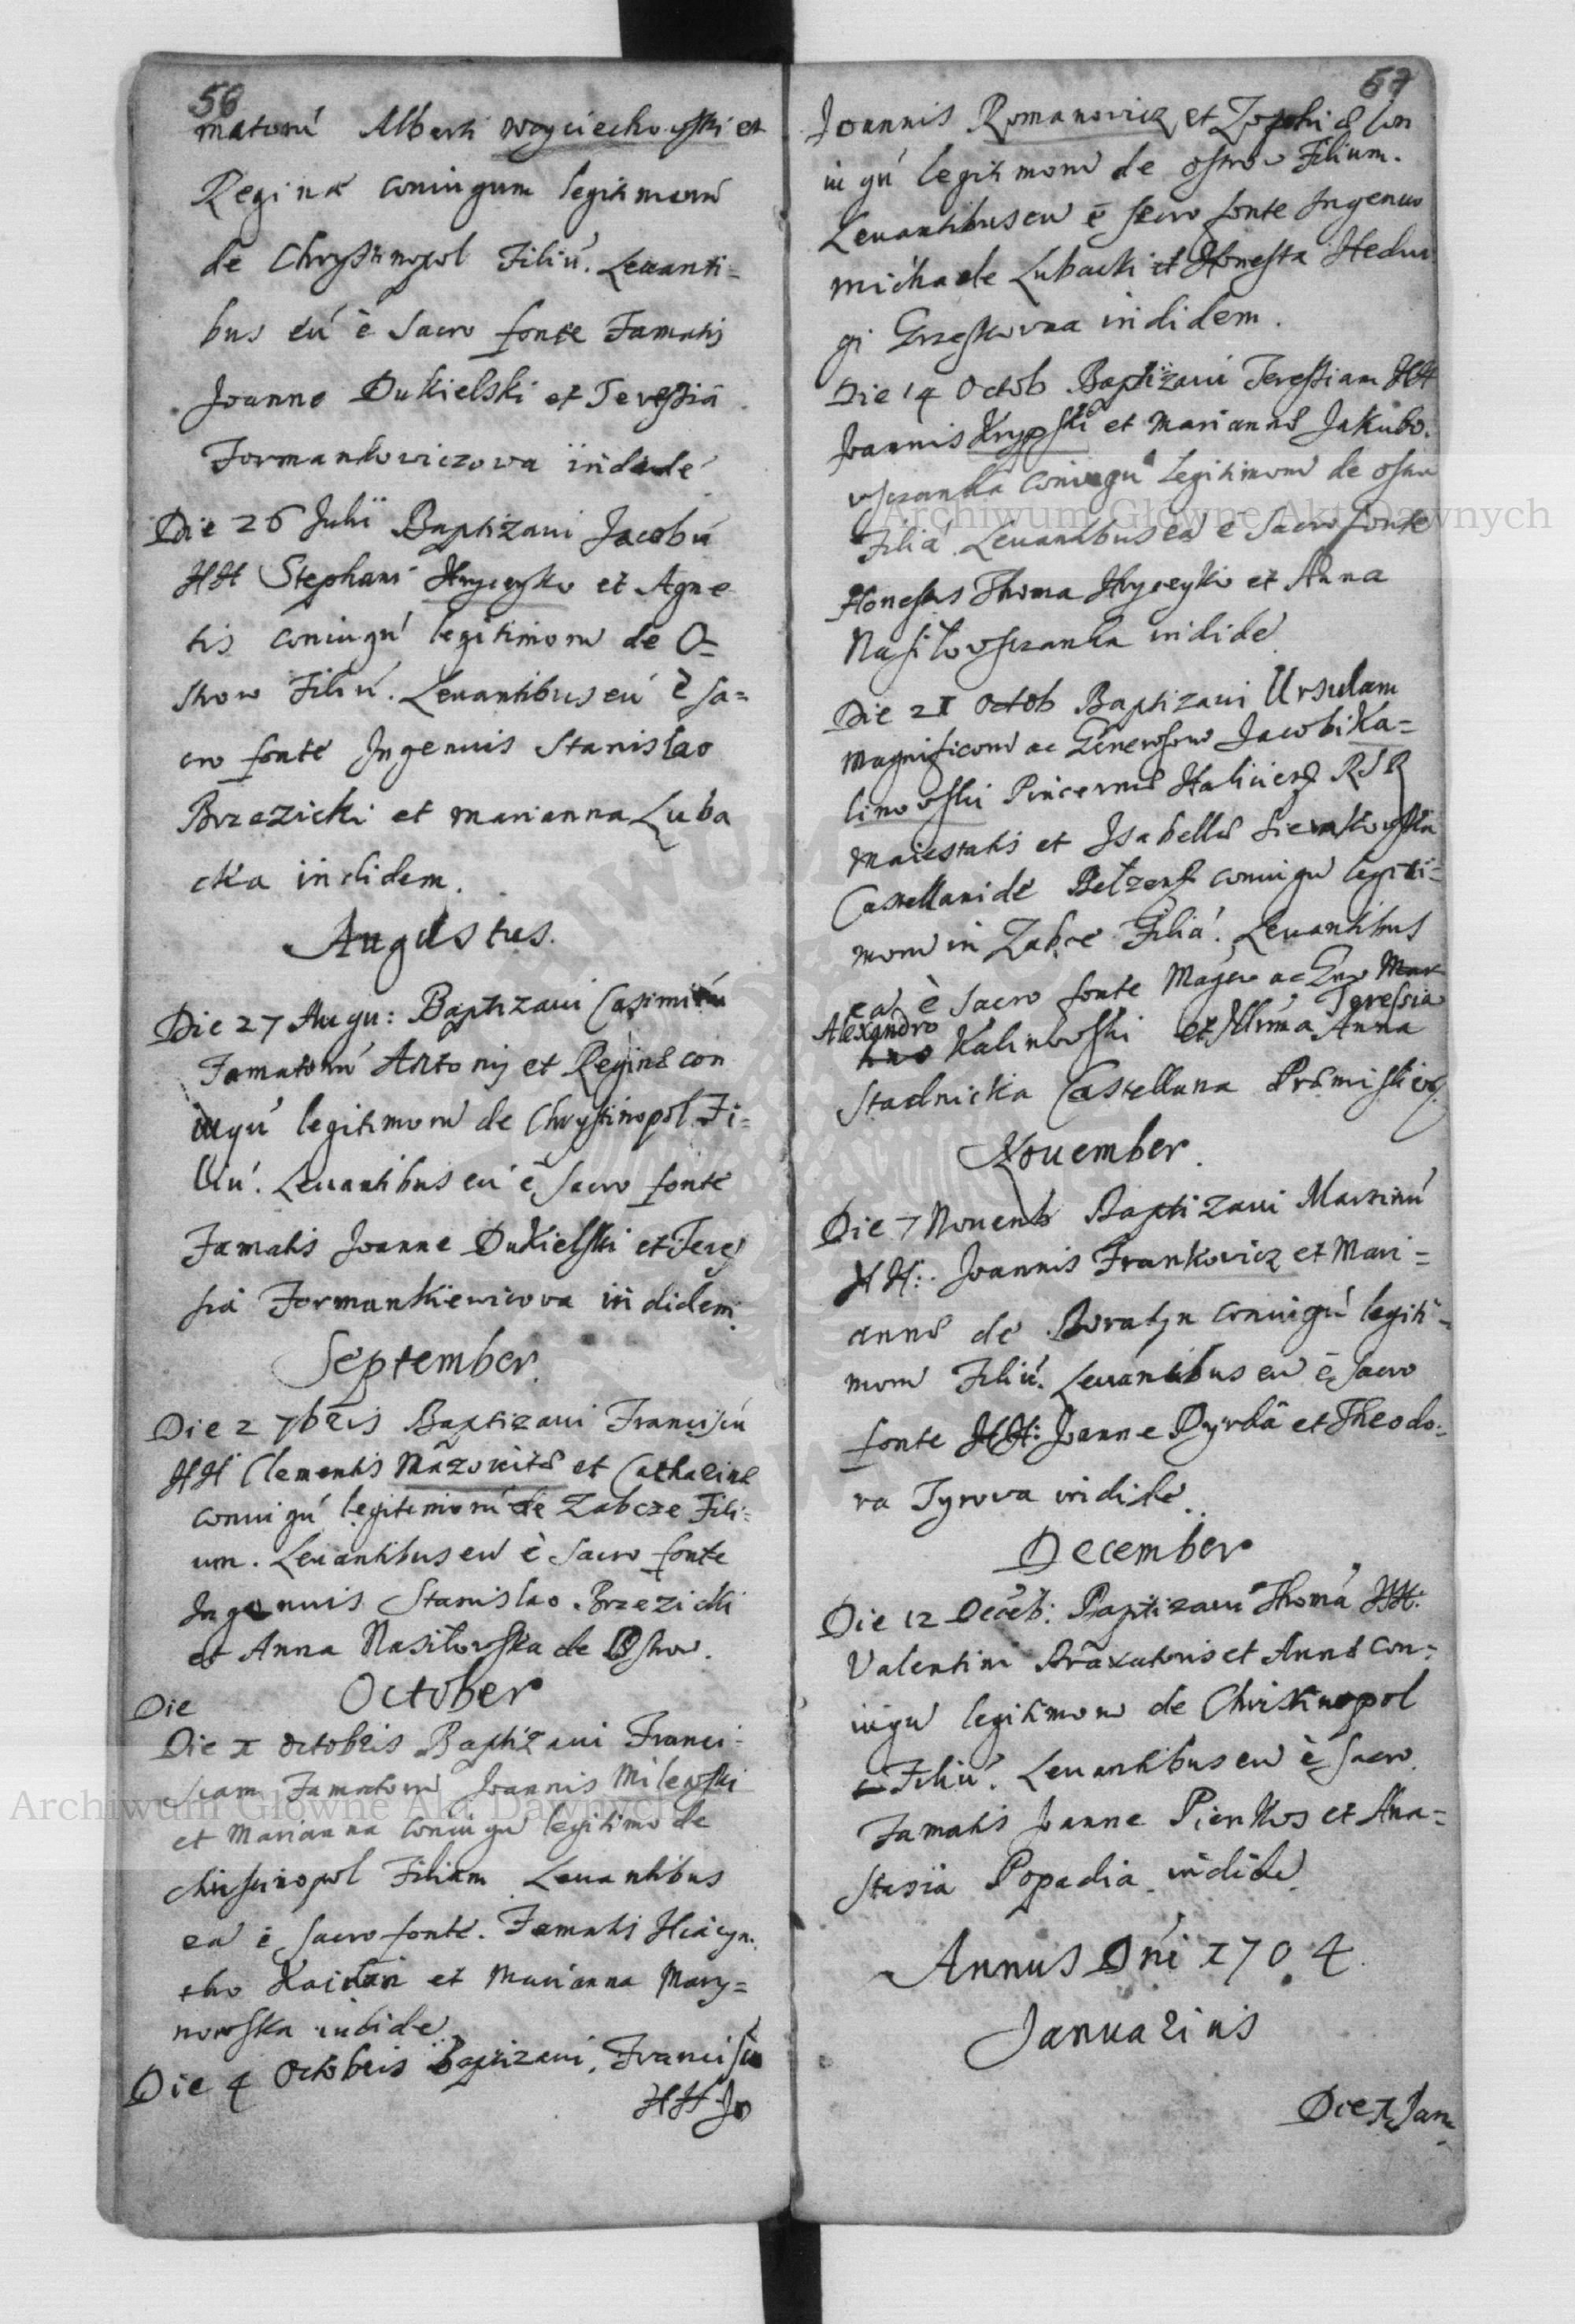 56
matorú Alberti Woyciechowski et
Reginæ coniugum legitimorú
de Chrystinopol Filiú. Leuanti=
bus eú è Sacro fonte Famatis
Joanne Dukielski et Teressia
Formankowiczowa ibidé
Die 26 Julii Baptizaui Jacobú
HH Stephani Hryceyko et Agne
tis coniugú legitimorú de O=
strow Filiú. Leuantibus eú è Sa=
cro fonte Ingenuis Stanislao
Brzezicki et Marianna Luba
cka indidem.
Augustus.
Die 27 Augu: Baptizaui Casimirú
Famatorú Antonij et Reginæ con
iugú legitimorú de Chrystinopol Fi=
liú. Leuantibus eú è Sacro fonte
Famatis Joanne Dukielski et Teres
sia Formankiewicova indidem
September.
Die 2 7bris Baptizaui Franciscú
HH Clementis Mazovitæ et Catharinæ
coniugú legitimorú de Zabcze Fili=
um. Leuantibus eú è Sacro fonte
Ingenuis Stanislao Brzezicki
et Anna Nasiłowska de Ostrow.
Die October
Die I octobris Baptizaui Franci=
scam Famatorú Joannis Milewski
et Marianna coniugú legitimo de
Christinopol Filiam Leuantibus
eá è Sacro fonte. Famatis Hiacyn
tho Kaidan et Marianna Mary=
nowska indidé
Die 4 Octobris Baptizaui Franciscú
HH Jo
57
Joannis Romanowicz et Zophiæ Con
iugú legitimorú de ostrow Filium.
Leuantibus eú è sacro fonte Ingenuo
Michaele Lubacki et Honesta Hedvi
gi Grzeskovna indidem.
Die 14 Octob Baptizaui Teressiam HH
Joannis Krypski et Mariannæ Jakubo.
wszanka coniugú legitimorú de ostro
Filiá Leuantibus eá è Sacro fonte
Honestis Thoma Hryceyko et Anna
Nasiłowszanka indidé
Die 21 Octob Baptizaui Ursulam
Magnificorú ac Generosorú Jacobi Ka=
linowski Pincernæ Haliciens RSR
Maiestatis et Isabellæ Sierakowska
Castellanidé Bełzens coniugú legiti=
morú in Zabce Filiá. Leuantibus
eá è Sacro fonte Magco ac Gnro Mar
Alexandro Teressia
tino Kalinowski et Illrma Anna
Stadnicka Castellana Præmisliens
Nouember.
Die 7 Nouemb Baptizaui Martinú
HH: Joannis Frankowicz et Mari=
annæ de Boratyn coniugú legiti=
morú Filiú. Leuantibus eú è Sacro
fonte HH: Joanne Dyrda et Theodo=
ra Tyrova indidé
December
Die 12 Decéb: Baptizaui Thomá HH:
Valentini Braxatoris et Annæ con=
iugú legitimorú de Christinopol
Filiú. Leuantibus eú è Sacro
Famatis Joanne Pienkos et Ana=
stasia Popadia indidé
Annus Dni 1704.
Januarius
Die I Jan
Archiwum Główne Akt Dawnych
Archiwum Główne Akt Dawnych